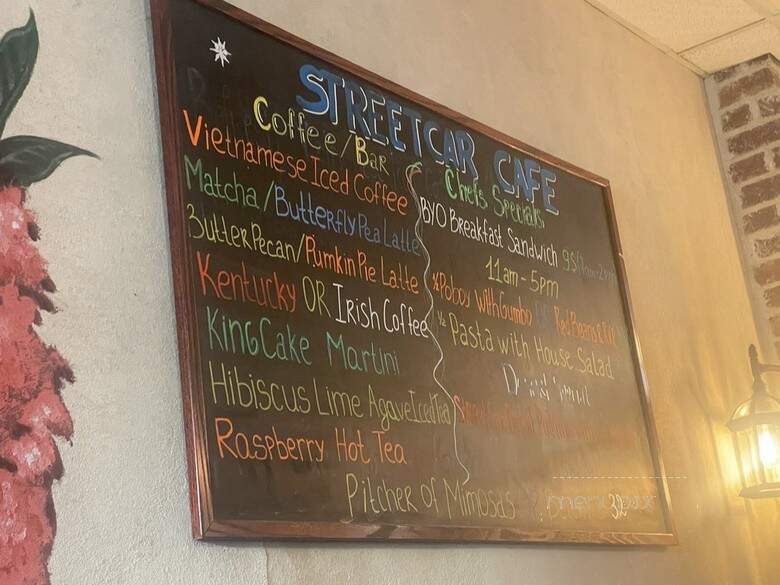 STREETCAR CAFE
Coffee/Bar
Vietnamese Iced Coffee
Matcha/Butterfly Pea Latte
Butter Pecan/Pumkin Pie Latte
Kentucky OR Irish Coffee
King Cake Martini
Hibiscus Lime Agave Iced Tea
Raspberry Hot Tea
Chefs Specials
BYO Breakfast Sandwich
11am - 5pm
½ Poboy With Gumbo Red Beans &
½ Pasta with House Salad
Pitcher of Mimosas 32